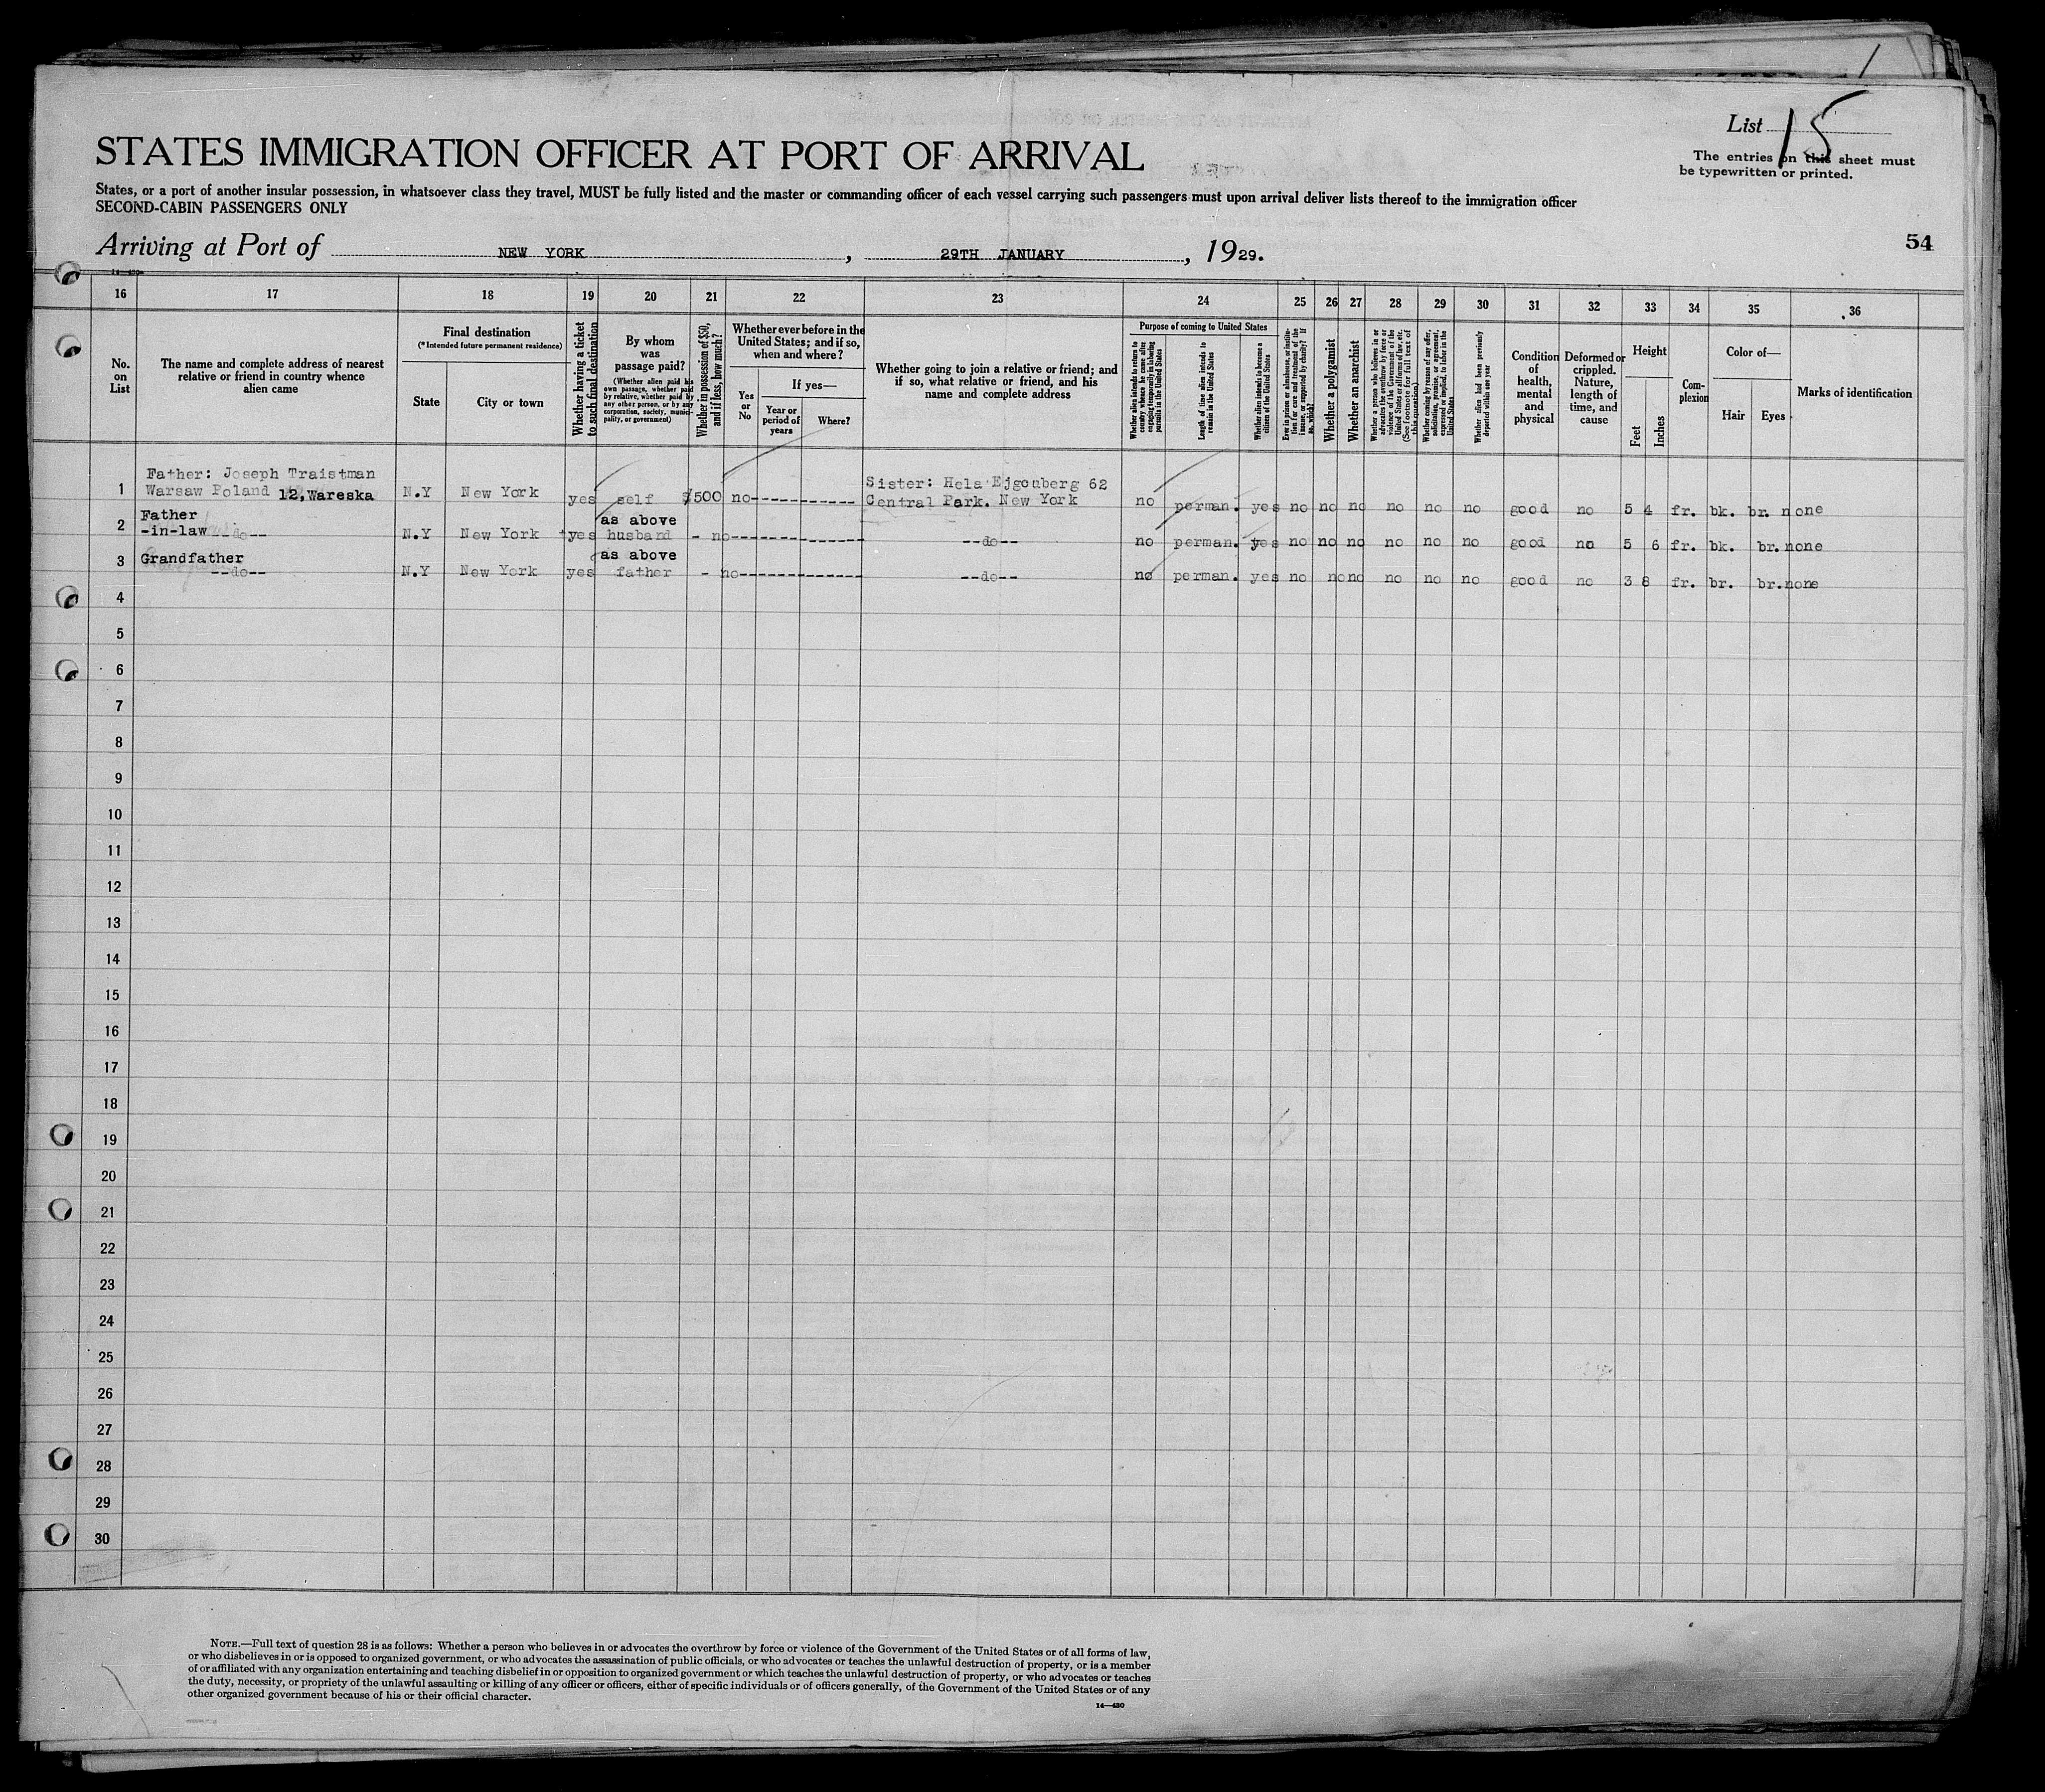 List 15
The entries on this sheet must
be typewritten or printed.
STATES IMMIGRATION OFFICER AT PORT OF ARRIVAL
States, or a port of another insular possession, in whatsoever class they travel, MUST be fully listed and the master or commanding officer of each vessel carrying such passengers must upon arrival deliver lists thereof to the immigration officer
SECOND-CABIN PASSENGERS ONLY
54
Arriving at Port of NEW YORK, 29TH JANUARY, 1929.
14-430
16 17 18 19 20 21 22 23 24 25 26 27 28 29 30 31 32 33 34 35 36
No. on List
The name and complete address of nearest relative or friend in country whence alien came
Final destination
(*Intended future permanent residence)
State
City or town
Whether having a ticket to such final destination
By whom was passage paid?
(Whether alien paid his own passage, whether paid by relative, whether paid by any other person, or by any corporation, society, municipality, or government)
Whether in possession of $50, and if less, how much?
Whether ever before in the United States; and if so, when and where?
Yes or No
If yes—
Year or period of years
Where?
Whether going to join a relative or friend; and if so, what relative or friend, and his name and complete address
Purpose of coming to United States
Whether alien intends to return to country whence he came after engaging temporarily in laboring pursuits in the United States
Length of time alien intends to remain in the United States
Whether alien intends to become a citizen of the United States
Ever in prison or almshouse, or institution for care and treatment of the insane, or supported by charity? If so, which?
Whether a polygamist
Whether an anarchist
Whether a person who believes in or advocates the overthrow by force or violence of the Government of the United States or all forms of law, etc. (See footnote for full text of this question.)
Whether coming by reason of any offer, solicitation, promise, or agreement, expressed or implied, to labor in the United States
Whether alien had been previously deported within one year
Condition of health, mental and physical
Deformed or crippled. Nature, length of time, and cause
Height
Feet
Inches
Complexion
Color of—
Hair
Eyes
Marks of identification
1 Father: Joseph Traistman Warsaw Poland 12, Wareska N.Y New York yes self $500 no Sister: Hela Ejgouberg 62 Central Park. New York no perman. yes no no no no no no good no 5 4 fr. bk. br. none
2 Father -in-law --do-- N.Y New York yes as above husband - no --do-- no perman. yes no no no no no no good no 5 6 fr. bk. br. none
3 Grandfather --do-- N.Y New York yes as above father - no --do-- no perman. yes no no no no no no good no 3 8 fr. br. br. none
4
5
6
7
8
9
10
11
12
13
14
15
16
17
18
19
20
21
22
23
24
25
26
27
28
29
30
NOTE.—Full text of question 28 is as follows: Whether a person who believes in or advocates the overthrow by force or violence of the Government of the United States or of all forms of law,
or who disbelieves in or is opposed to organized government, or who advocates the assassination of public officials, or who advocates or teaches the unlawful destruction of property, or is a member
of or affiliated with any organization entertaining and teaching disbelief in or opposition to organized government or which teaches the unlawful destruction of property, or who advocates or teaches
the duty, necessity, or propriety of the unlawful assaulting or killing of any officer or officers, either of specific individuals or of officers generally, of the Government of the United States or of any
other organized government because of his or their official character.
14—430